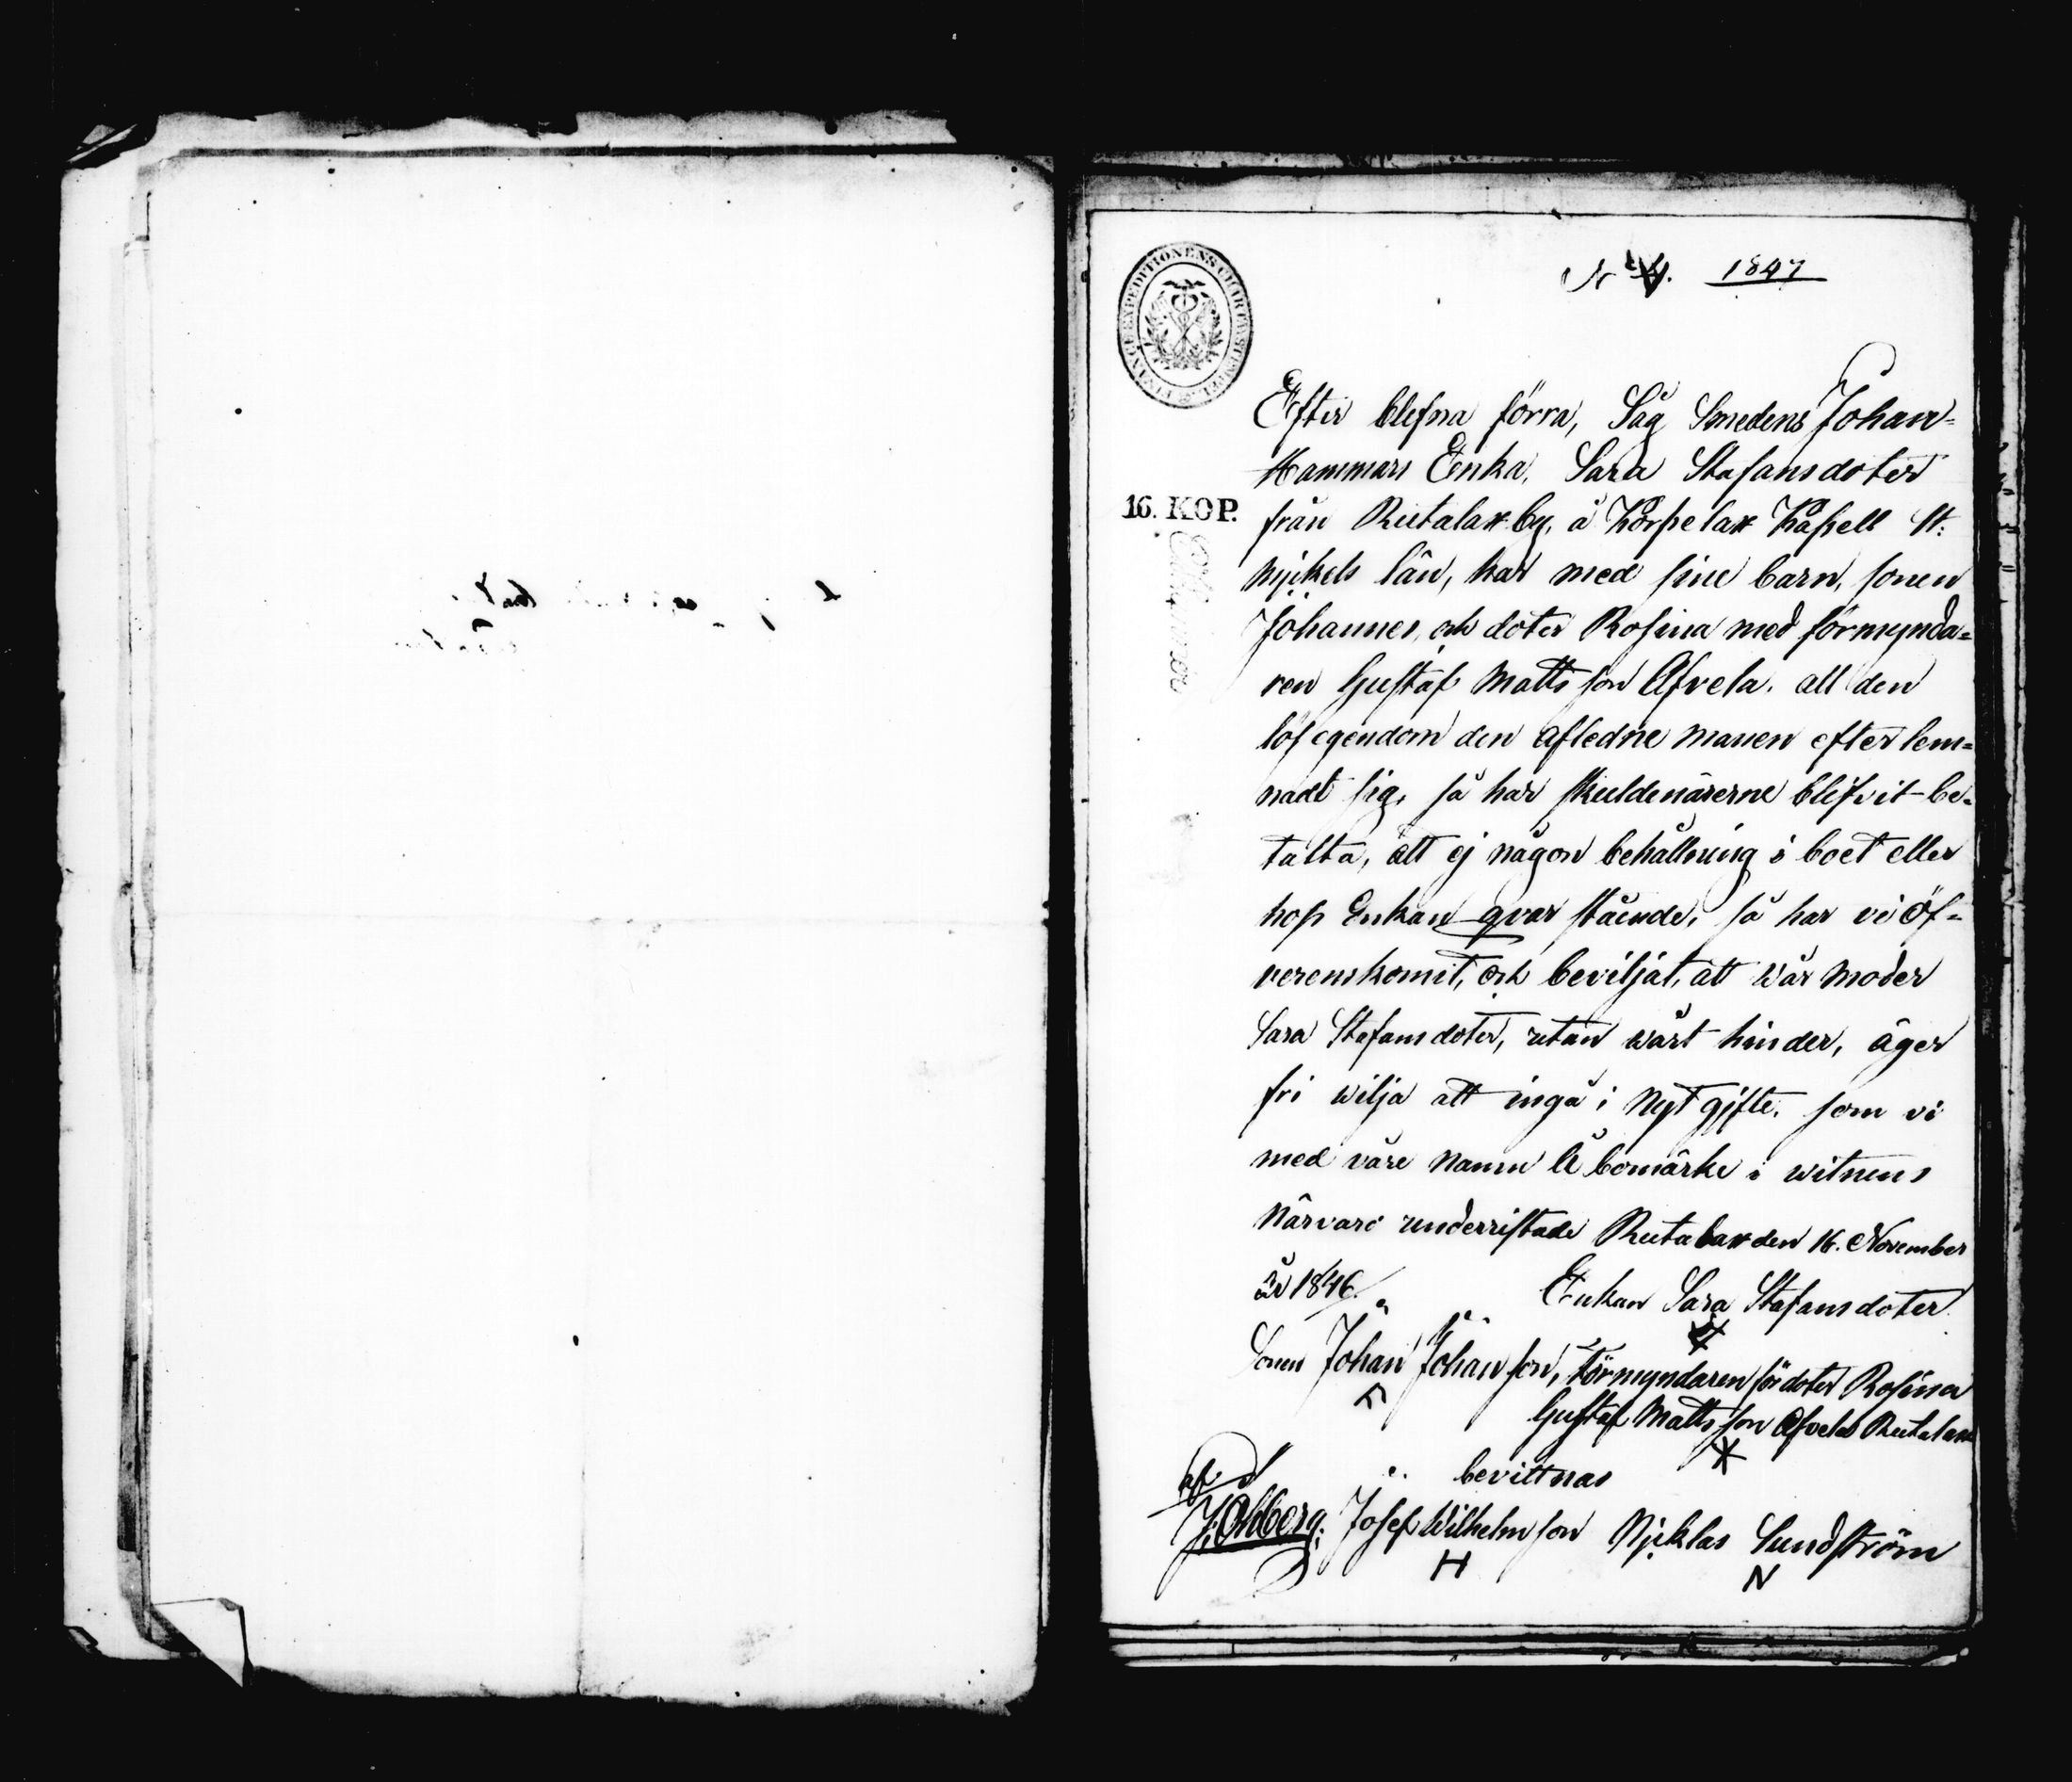 1847
FINANCE EXPEDITIONENS CHARTÆ STEMPEL
Efter blefna förra, Såg Smedens Johan-
Hammars Enka, Sara Stafansdoter
16. KOP.
från Rutalax by, å Korpelax Kapell St:
Mjikels län, har med sine barn, sonen
Johannes, och doter Rosina med förmynda=
ren Gustaf Matts son Afvela. all den
lös egendom den afledne manen efter lem=
nadt sig, så har skuldenärerne blifvit be-
talta, att ej någon behållning i boet eller
hos Enkan qvar stående, så har vi öf-
verenskomit, och beviljat, att wår moder
Sara Stafansdoter, utan wårt hinder, äger
fri wilja att ingå i nyt gjfte. som vi
med våre namn & bomärke i witnens
närvaro underristade Rutalax den 16. November
år 1846.
Enkan Sara Stafansdoter
Sonen Johan Johan son, Förmyndaren för doter Rosina
Gustaf Matts son Afvela Rutalax
bevittnas
af
J. Ahlberg. Josef Wilhelm son Njklas Sundström
H N